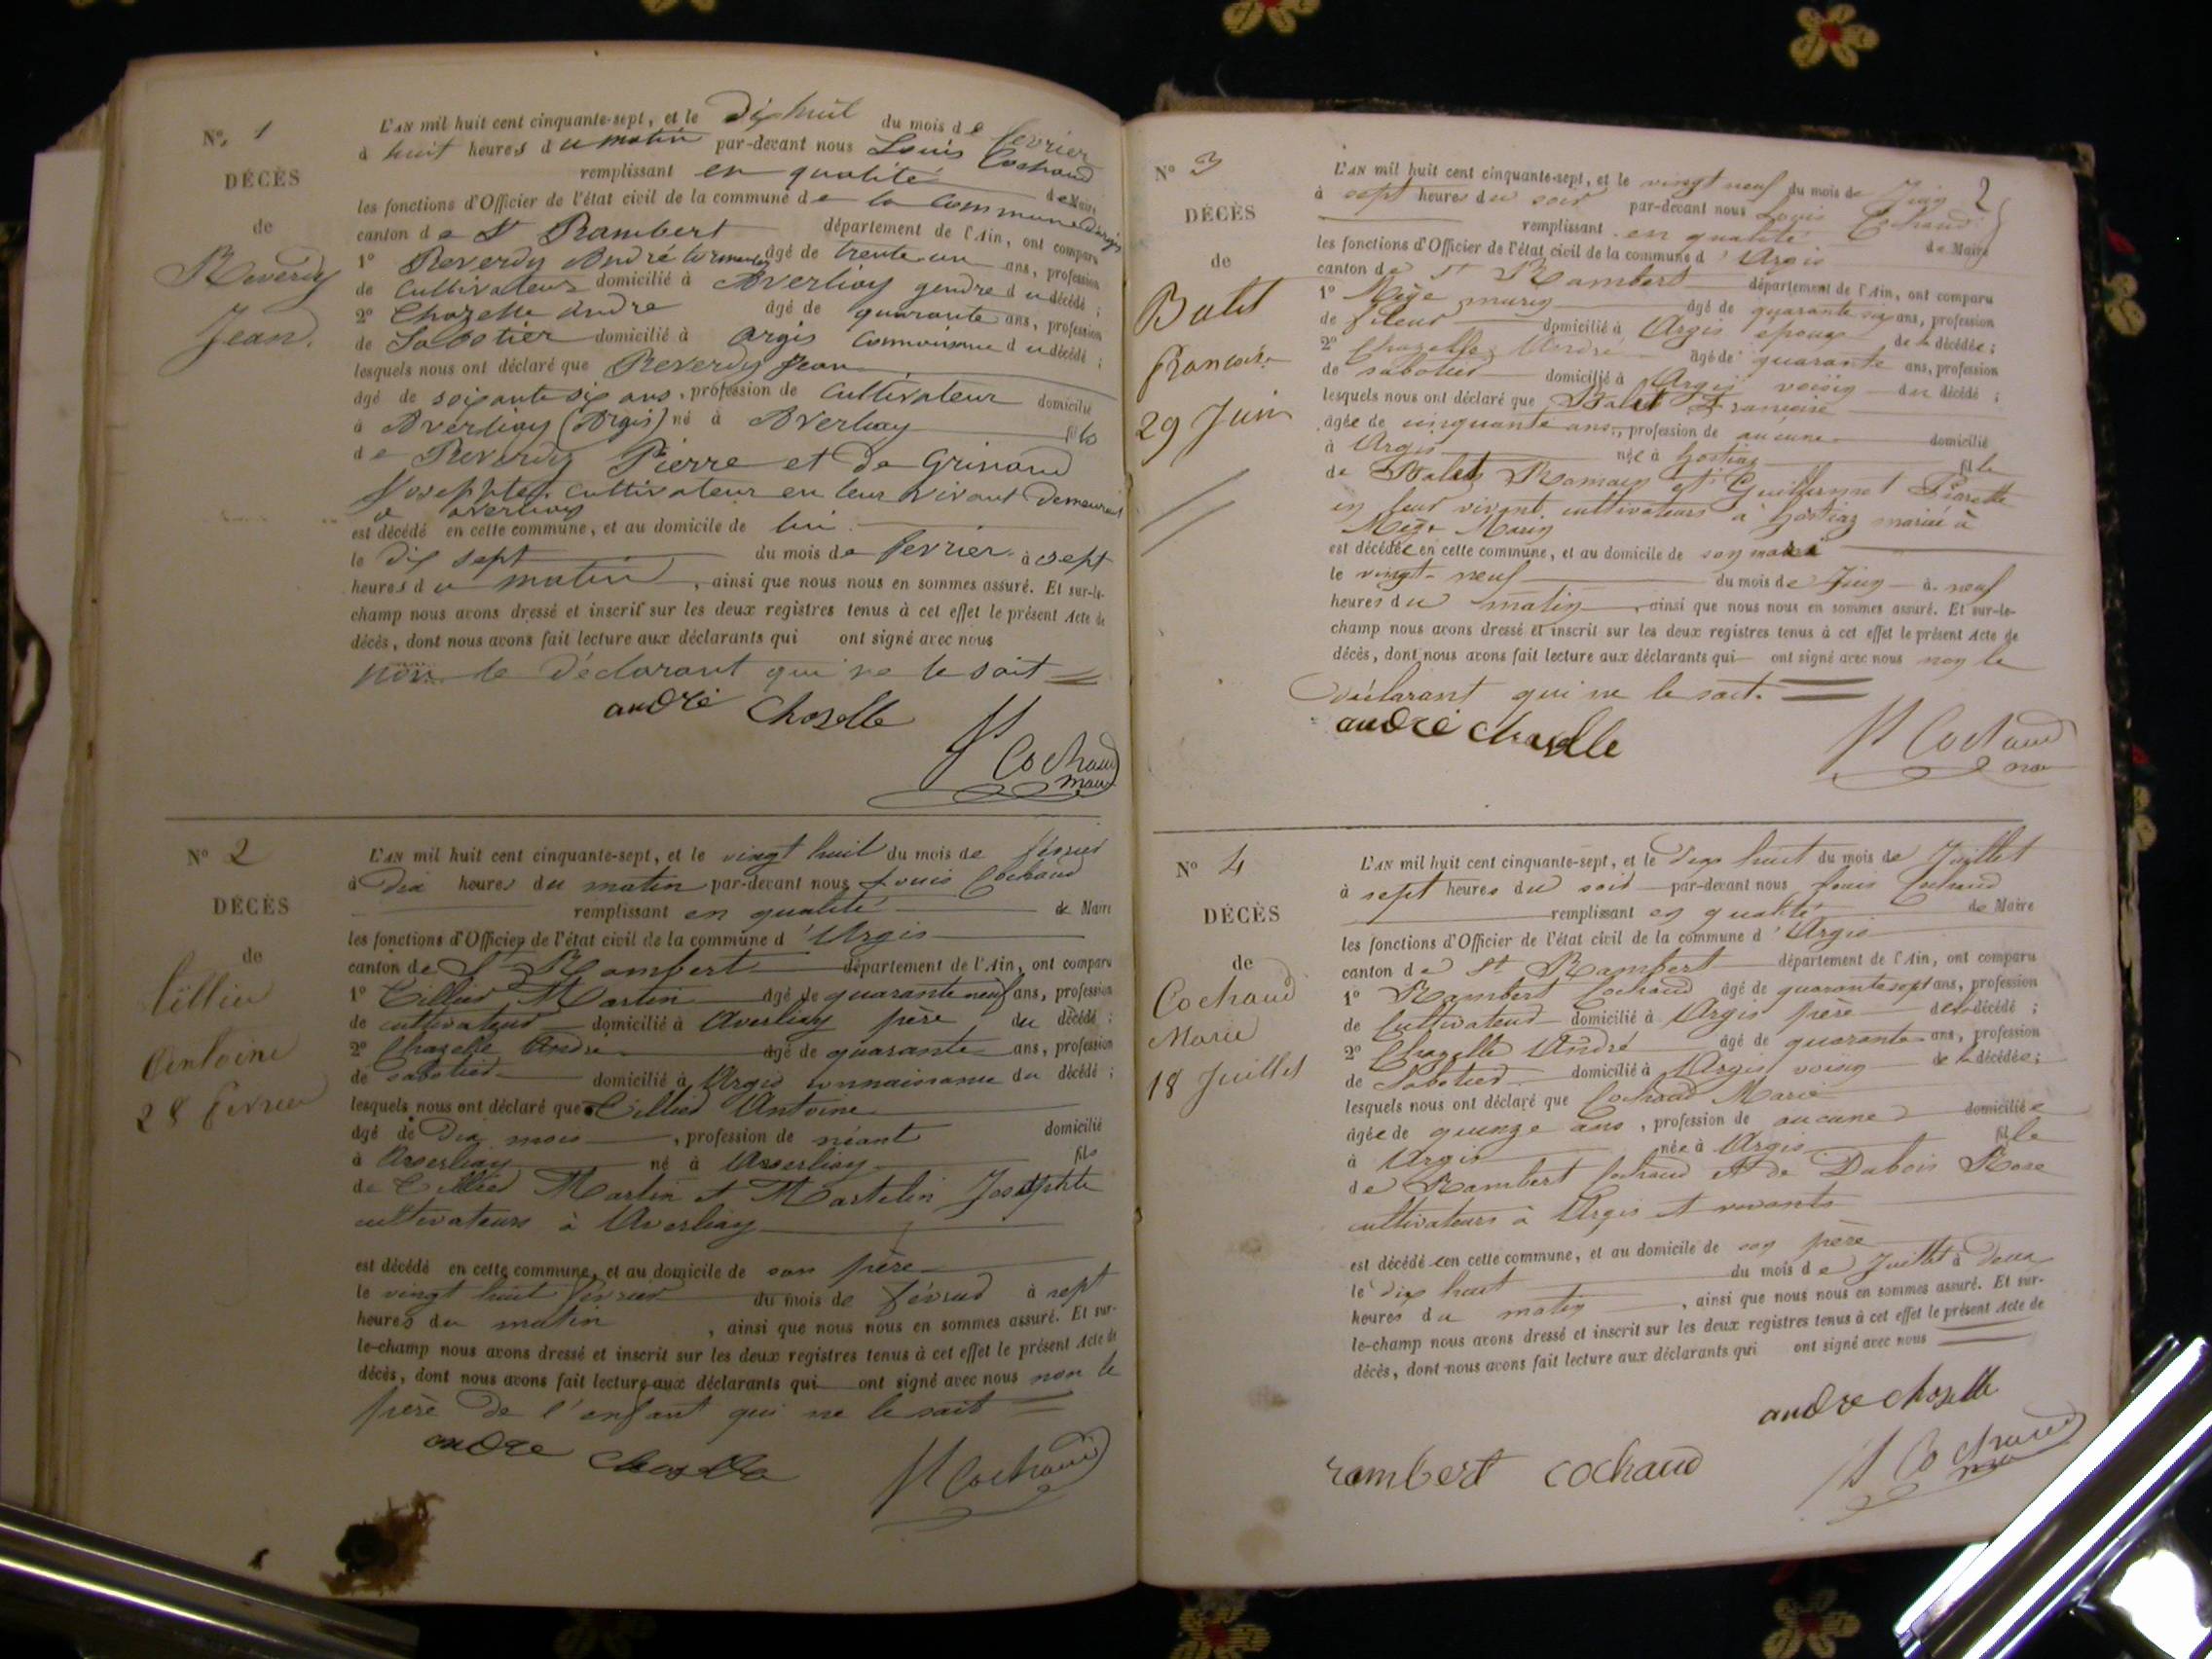 N° 1
DÉCÈS
de
Reverdy
Jean.
L'AN mil huit cent cinquante-sept, et le dix huit du mois de fevrier
à huit heures du matin par-devant nous Louis Cochaud
remplissant en qualité de Maire
les fonctions d'Officier de l'état civil de la commune de la Commune d'argis
canton de St Rambert département de l'Ain, ont comparu
1° Reverdy André agé de trente un ans, profession
de Cultivateur domicilié à Averliay gendre du décédé ;
2° Chazelle andre âgé de quarante ans, profession
de Sabotier domicilié à argis connaissance du décédé ;
lesquels nous ont déclaré que Reverdy Jean
agé de soixante six ans, profession de Cultivateur domicilié
à Averliay (Argis) né à Averliay fils
de Reverdy Pierre et de Grinand
Josephte cultivateur en leur vivant demeurant
a averliay
est décédé en cette commune, et au domicile de lui
le dix sept du mois de fevrier à sept
heures du matin, ainsi que nous nous en sommes assuré. Et sur-le-
champ nous avons dressé et inscrit sur les deux registres tenus à cet effet le présent Acte de
décès, dont nous avons fait lecture aux déclarants qui ont signé avec nous
non le déclarant qui ne le sait
andré Chazelle
Ls Cochaud
maire
N° 2
DÉCÈS
de
Tillier
Antoine
28 fevrier
L'AN mil huit cent cinquante-sept, et le vingt huit du mois de février
à dix heures du matin par-devant nous Louis Cochaud
remplissant en qualité de Maire
les fonctions d'Officier de l'état civil de la commune d'Argis
canton de St Rambert département de l'Ain, ont comparu
1° Tillier Martin agé de quarante neuf ans, profession
de cultivateur domicilié à Averliay père du décédé ;
2° Chazelle André agé de quarante ans, profession
de sabotier domicilié à Argis connaissance du décédé ;
lesquels nous ont déclaré que Tillier Antoine
agé de dix mois, profession de néant domicilié
à Averliay né à Averliay fils
de Tillier Martin et Martelin Josephte
cultivateurs à Averliay
est décédé en cette commune, et au domicile de son père
le vingt huit février du mois de février à sept
heures du matin, ainsi que nous nous en sommes assuré. Et sur-
le-champ nous avons dressé et inscrit sur les deux registres tenus à cet effet le présent Acte de
décès, dont nous avons fait lecture aux déclarants qui ont signé avec nous non le
père de l'enfant qui ne le sait
andre Chazelle
Ls Cochaud
2
N° 3
DÉCÈS
de
Balet
francoise
29 Juin
L'AN mil huit cent cinquante-sept, et le vingt neuf du mois de Juin
à sept heures du soir par-devant nous Louis Cochaud
remplissant en qualité de Maire
les fonctions d'Officier de l'état civil de la commune d'Argis
canton de St Rambert département de l'Ain, ont comparu
1° Mège marin agé de quarante six ans, profession
de fileur domicilié à Argis époux de la décédée ;
2° Chazelle André agé de quarante ans, profession
de sabotier domicilié à Argis voisin du décédé ;
lesquels nous ont déclaré que Balet Francoise
agée de cinquante ans, profession de aucune domicilié
à Argis née à hostiaz fille
de Balet Romain et Guillermet Pierrette
en leur vivant cultivateurs à hostiaz mariée à
Mège Marin
est décédée en cette commune, et au domicile de son mari
le vingt-neuf du mois de Juin à neuf
heures du matin, ainsi que nous nous en sommes assuré. Et sur-le-
champ nous avons dressé et inscrit sur les deux registres tenus à cet effet le présent Acte de
décès, dont nous avons fait lecture aux déclarants qui ont signé avec nous non le
déclarant qui ne le sait.
andré chazelle
Ls Cochaud
N° 4
DÉCÈS
de
Cochaud
Marie
18 Juillet
L'AN mil huit cent cinquante-sept, et le dix huit du mois de Juillet
à sept heures du soir par-devant nous Louis Cochaud
remplissant en qualité de Maire
les fonctions d'Officier de l'état civil de la commune d'Argis
canton de St Rambert département de l'Ain, ont comparu
1° Rambert Cochaud âgé de quarante sept ans, profession
de Cultivateur domicilié à Argis père de la décédé ;
2° Chazelle André âgé de quarante ans, profession
de Sabotier domicilié à Argis voisin de la décédée ;
lesquels nous ont déclaré que Cochaud Marie
âgée de quinze ans, profession de aucune domiciliée
à Argis née à Argis fille
de Rambert Cochaud et de Dubois Rose
cultivateurs à Argis et vivants
est décédée en cette commune, et au domicile de son père
le dix huit du mois de Juillet à deux
heures du matin, ainsi que nous nous en sommes assuré. Et sur-
le-champ nous avons dressé et inscrit sur les deux registres tenus à cet effet le présent Acte de
décès, dont nous avons fait lecture aux déclarants qui ont signé avec nous
andre chazelle
rambert cochaud
Ls Cochaud